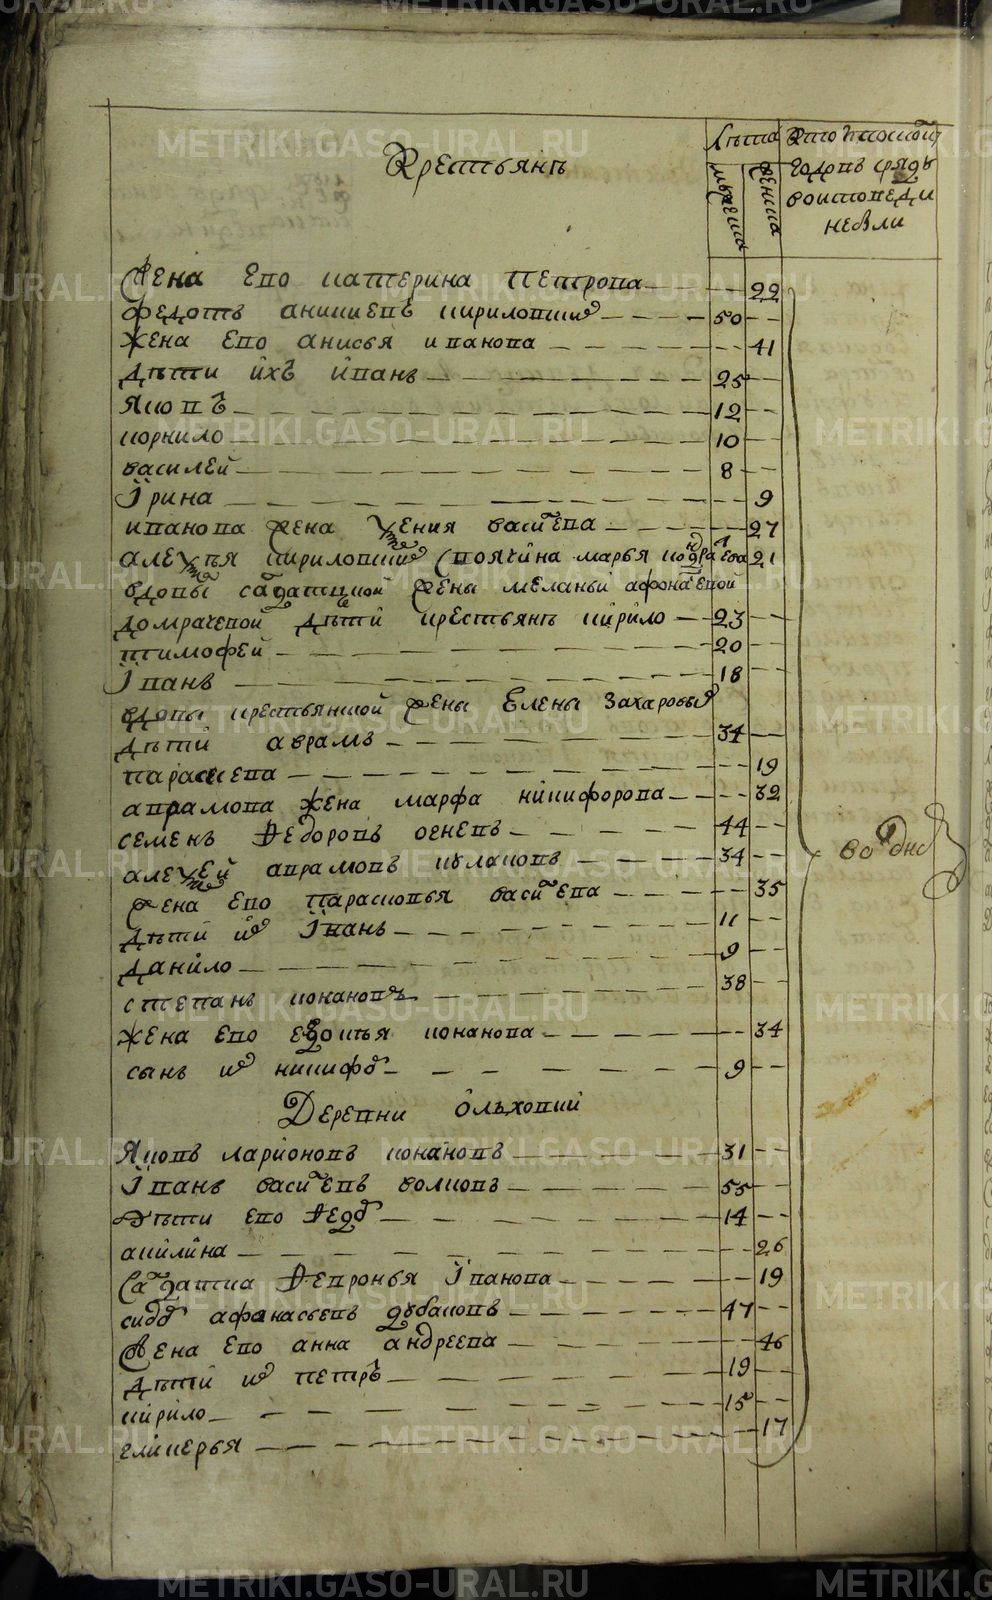 METRIKI.GASO-URAL.RU
Крестьянъ
Лѣта
мужеска
женска
Кто
годовъ сряду
во исповеди
небыли
Жена Ево катерина Петрова — 22
Федотъ аникиевъ кириловыхъ — 50
Жена Ево анисья иванова — 41
Дѣти ихъ иванъ — 25
Яковъ — 12
корнило — 10
василей — 8
Їрина — 9
иванова жена василева — 27
кириловыхъ марья 21
вдовы салдатской жены меланьи афонасевой
домрачевой дѣти крестьянъ кирило — 23
тимофей — 20
Їванъ — 18
вдовы крестьянской жены Елены Захаровы
дѣти аврамъ — 34
Параскева — 19
аврамова жена марфа никифорова — 32
семенъ Федоровъ огневъ — 44
алексей аврамовъ кулаковъ — 34
жена Ево Парасковья василева — 35
дѣти их Їванъ — 11
данило — 9
степанъ конановъ — 38
жена Ево евдокья конанова — 34
сынъ их никифоръ — 9
Деревни ольковки
Яковъ ларионовъ конановъ — 31
Їванъ василевъ волковъ — 55
Дѣти Ево Федоръ — 14
акилина — 26
Салдатка Февронья Їванова — 19
сидоръ афанасьевъ дубаковъ — 47
Жена Ево анна андреева — 46
дѣти их петръ — 19
кирило — 15
гликерья — 17